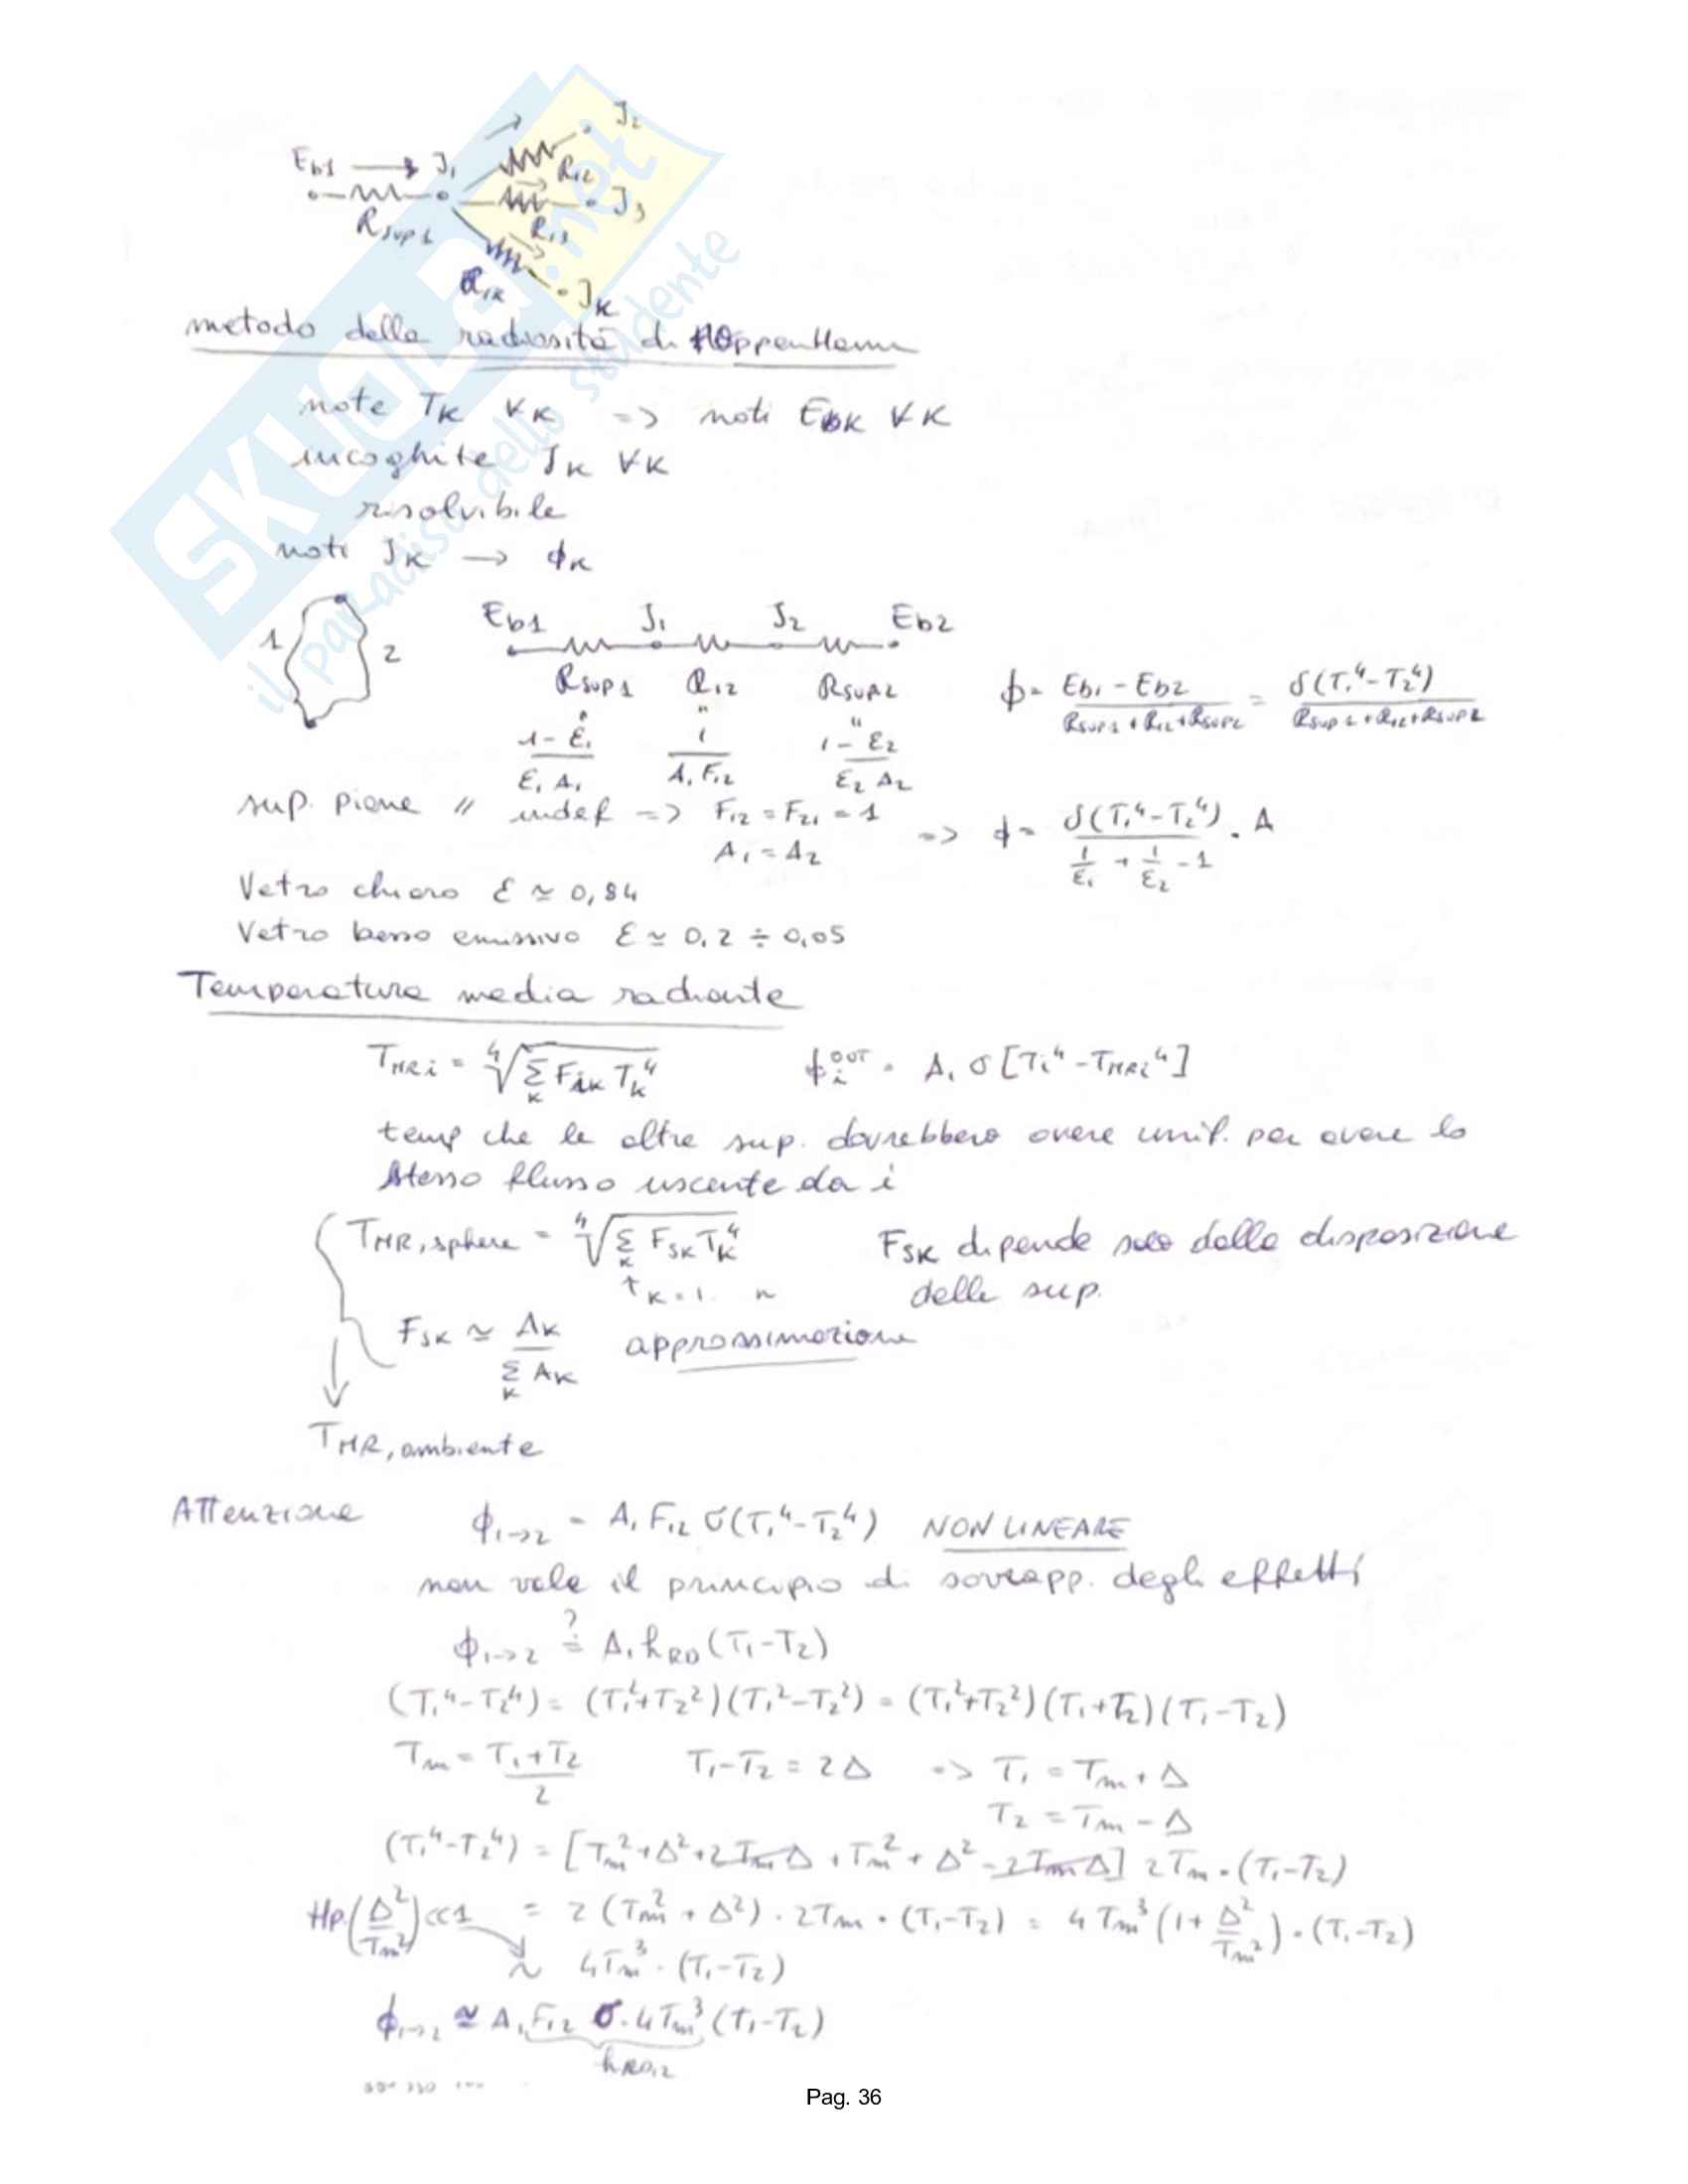 J₂
Eb1 → J₁
R₁₂
J₃
Rsup1
R₁₃
R₁K
JK
metodo della radiosità di HOppenHeim
note TK ∀K => noti EbK ∀K
incognite JK ∀K
risolvibile
noti JK → ϕK
Eb1 J₁ J₂ Eb2
1 2
Rsup1 R₁₂ Rsup2
ϕ = (Eb1 - Eb2)/(Rsup1 + R12 + Rsup2) = σ(T₁⁴-T₂⁴)/(Rsup1 + R12 + Rsup2)
" " "
(1-ε₁)/(ε₁ A₁) 1/(A₁ F₁₂) (1-ε₂)/(ε₂ A₂)
sup. piane // indef => F₁₂ = F₂₁ = 1
A₁ = A₂
=> ϕ = σ(T₁⁴-T₂⁴)/(1/ε₁ + 1/ε₂ - 1) · A
Vetro chiaro ε ≃ 0,84
Vetro basso emissivo ε ≃ 0,2 ÷ 0,05
Temperatura media radiante
TMRi = ⁴√(Σ_K FiK TK⁴) ϕi^OUT = Ai σ [Ti⁴ - TMRi⁴]
temp che le altre sup. dovrebbero avere unif. per avere lo
stesso flusso uscente da i
TMR, sphere = ⁴√(Σ_K FSK TK⁴) FSK dipende solo dalla disposizione
K=1 n delle sup.
FSK ≃ AK/(Σ_K AK) approssimazione
TMR, ambiente
Attenzione ϕ1->2 = A₁ F₁₂ σ(T₁⁴-T₂⁴) NON LINEARE
non vale il principio di sovrapp. degli effetti
ϕ1->2 =? A₁ hRD (T₁-T₂)
(T₁⁴-T₂⁴) = (T₁²+T₂²)(T₁²-T₂²) = (T₁²+T₂²)(T₁+T₂)(T₁-T₂)
Tm = (T₁+T₂)/2 T₁-T₂ = 2Δ => T₁ = Tm + Δ
T₂ = Tm - Δ
(T₁⁴-T₂⁴) = [Tm²+Δ²+2TmΔ + Tm² + Δ² - 2TmΔ] 2Tm · (T₁-T₂)
Hp. (Δ²/Tm²) <<1 = 2 (Tm² + Δ²) · 2Tm · (T₁-T₂) = 4Tm³ (1 + Δ²/Tm²) · (T₁-T₂)
~ 4Tm³ · (T₁-T₂)
ϕ1->2 ≃ A₁ F₁₂ σ · 4Tm³ (T₁-T₂)
hRD,12
Pag. 36
SKUOLA.net
il paradiso dello studente